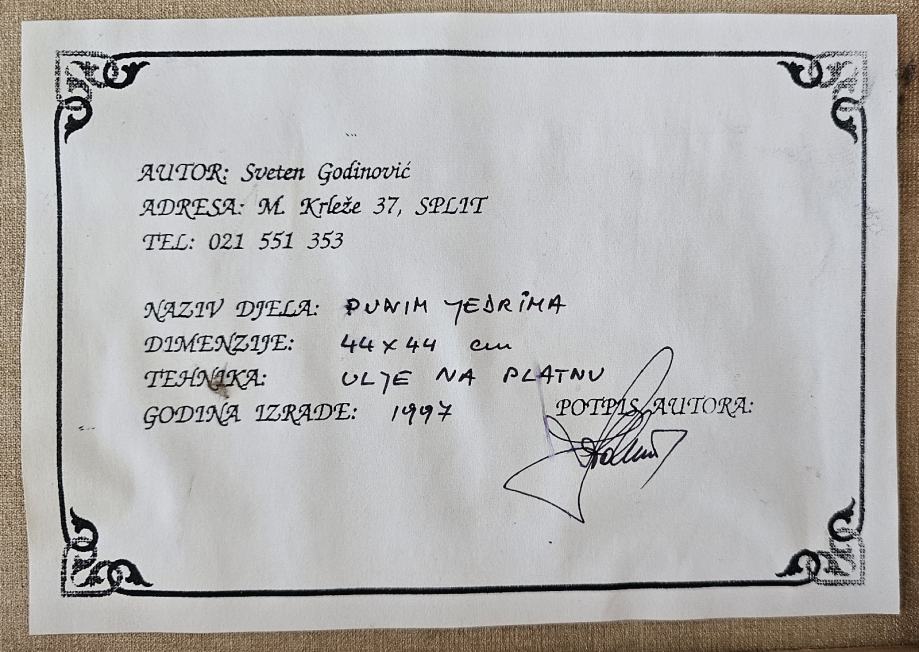 AUTOR: Sveten Godinović
ADRESA: M. Krleže 37, SPLIT
TEL: 021 551 353
NAZIV DJELA: PUNIM JEDRIMA
DIMENZIJE: 44 x 44 cm
TEHNIKA: ULJE NA PLATNU
GODINA IZRADE: 1997 POTPIS AUTORA: